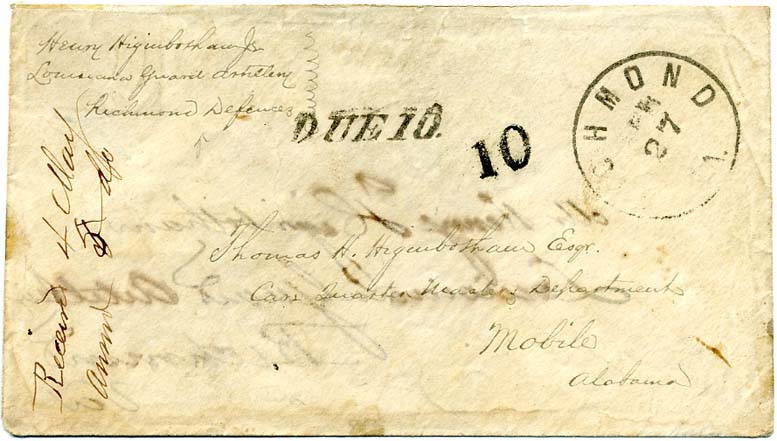 Henry Higinbotham Jr
Louisiana Guard Artillery
Richmond Defences
DUE 10.
10
CHMOND
27
Thomas H. Higinbotham Esqr.
Care Quarter Master's Department
Mobile
Alabama
Received 4 May